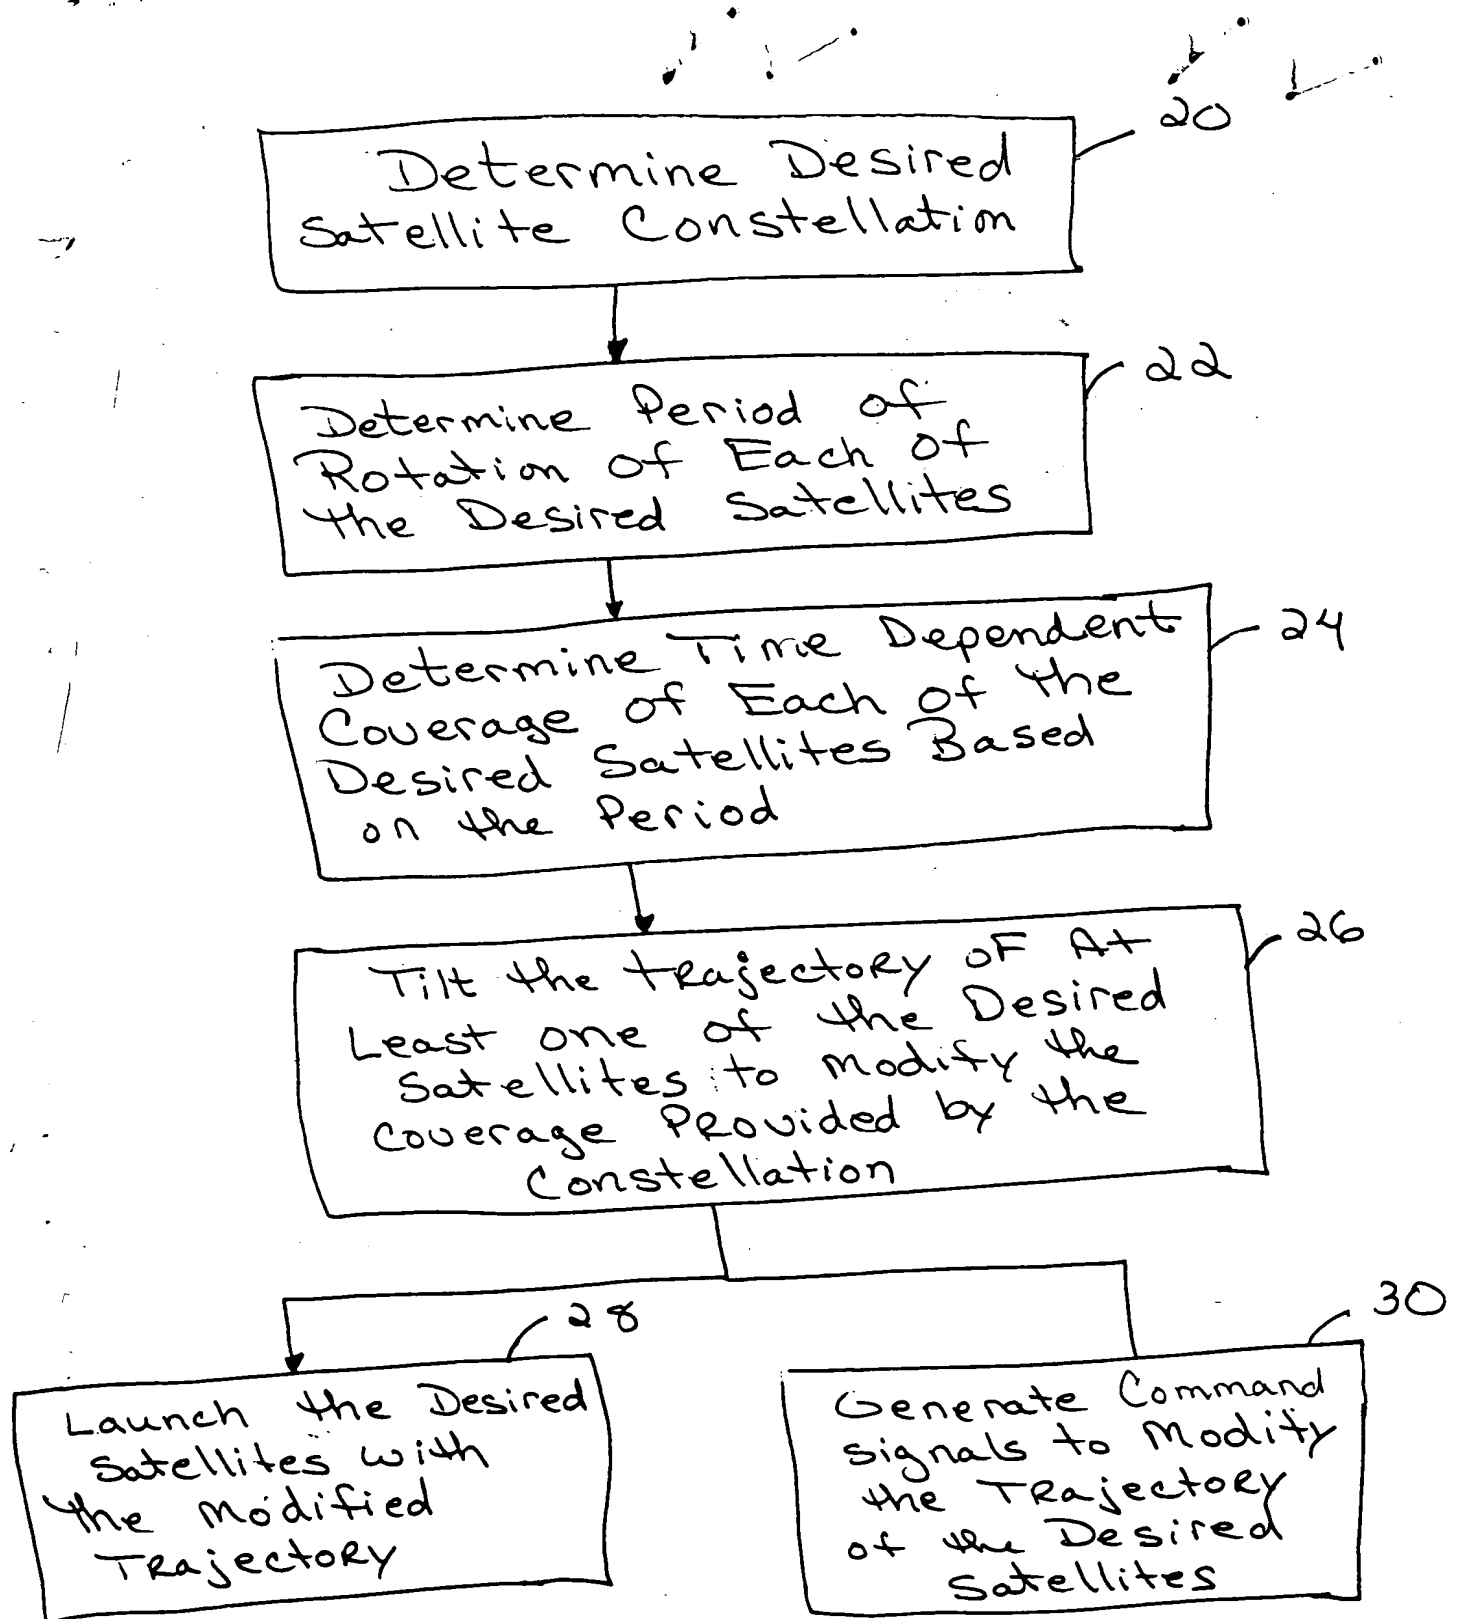 20
Determine Desired
Satellite Constellation
22
Determine Period of
Rotation of Each of
the Desired Satellites
24
Determine Time Dependent
Coverage of Each of the
Desired Satellites Based
on the Period
26
Tilt the trajectory of At
Least one of the Desired
Satellites to modify the
coverage Provided by the
Constellation
28
Launch the Desired
Satellites with
the modified
Trajectory
30
Generate Command
signals to Modify
the Trajectory
of the Desired
Satellites